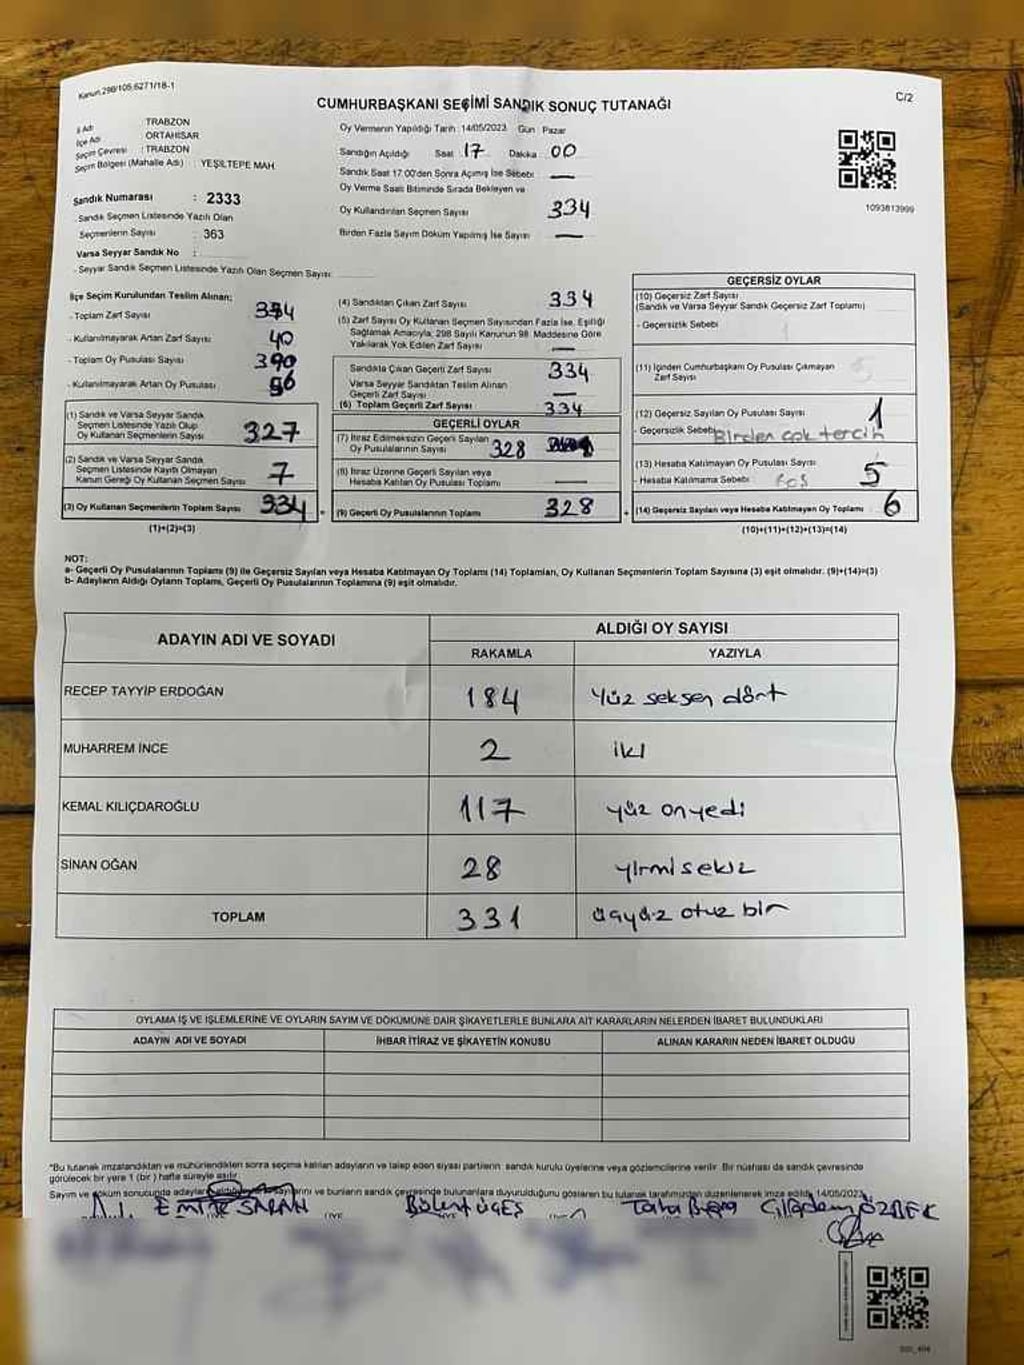 Kanun.298/105,6271/18-1
CUMHURBAŞKANI SEÇİMİ SANDIK SONUÇ TUTANAĞI
C/2
İl Adı : TRABZON
İlçe Adı : ORTAHİSAR
Seçim Çevresi : TRABZON
Seçim Bölgesi (Mahalle Adı) : YEŞİLTEPE MAH.
Sandık Numarası : 2333
- Sandık Seçmen Listesinde Yazılı Olan
Seçmenlerin Sayısı : 363
Varsa Seyyar Sandık No :
- Seyyar Sandık Seçmen Listesinde Yazılı Olan Seçmen Sayısı:
Oy Vermenin Yapıldığı Tarih : 14/05/2023 Gün Pazar
Sandığın Açıldığı Saat : 17 Dakika 00
Sandık Saat 17:00'den Sonra Açılmış İse Sebebi : —
Oy Verme Saati Bitiminde Sırada Bekleyen ve
Oy Kullandırılan Seçmen Sayısı 334
Birden Fazla Sayım Döküm Yapılmış İse Sayısı —
1093813999
İlçe Seçim Kurulundan Teslim Alınan;
- Toplam Zarf Sayısı
- Kullanılmayarak Artan Zarf Sayısı 40
- Toplam Oy Pusulası Sayısı 390
- Kullanılmayarak Artan Oy Pusulası
(1) Sandık ve Varsa Seyyar Sandık
Seçmen Listesinde Yazılı Olup
Oy Kullanan Seçmenlerin Sayısı 327
(2) Sandık ve Varsa Seyyar Sandık
Seçmen Listesinde Kayıtlı Olmayan
Kanun Gereği Oy Kullanan Seçmen Sayısı 7
(3) Oy Kullanan Seçmenlerin Toplam Sayısı 334
(1)+(2)=(3)
(4) Sandıktan Çıkan Zarf Sayısı 334
(5) Zarf Sayısı Oy Kullanan Seçmen Sayısından Fazla İse, Eşitliği
Sağlamak Amacıyla; 298 Sayılı Kanunun 98. Maddesine Göre
Yakılarak Yok Edilen Zarf Sayısı —
Sandıkta Çıkan Geçerli Zarf Sayısı 334
Varsa Seyyar Sandıktan Teslim Alınan
Geçerli Zarf Sayısı —
(6) Toplam Geçerli Zarf Sayısı : 334
GEÇERLİ OYLAR
(7) İtiraz Edilmeksizin Geçerli Sayılan
Oy Pusulalarının Sayısı 328
(8) İtiraz Üzerine Geçerli Sayılan veya
Hesaba Katılan Oy Pusulası Toplamı —
(9) Geçerli Oy Pusulalarının Toplamı 328
GEÇERSİZ OYLAR
(10) Geçersiz Zarf Sayısı
(Sandık ve Varsa Seyyar Sandık Geçersiz Zarf Toplamı)
- Geçersizlik Sebebi
(11) İçinden Cumhurbaşkanı Oy Pusulası Çıkmayan
Zarf Sayısı
(12) Geçersiz Sayılan Oy Pusulası Sayısı 1
- Geçersizlik Sebebi Birden çok tercih
(13) Hesaba Katılmayan Oy Pusulası Sayısı 5
- Hesaba Katılmama Sebebi Boş
(14) Geçersiz Sayılan veya Hesaba Katılmayan Oy Toplamı 6
(10)+(11)+(12)+(13)=(14)
NOT:
a- Geçerli Oy Pusulalarının Toplamı (9) ile Geçersiz Sayılan veya Hesaba Katılmayan Oy Toplamı (14) Toplamları, Oy Kullanan Seçmenlerin Toplam Sayısına (3) eşit olmalıdır. (9)+(14)=(3)
b- Adayların Aldığı Oyların Toplamı, Geçerli Oy Pusulalarının Toplamına (9) eşit olmalıdır.
ADAYIN ADI VE SOYADI
ALDIĞI OY SAYISI
RAKAMLA YAZIYLA
RECEP TAYYİP ERDOĞAN 184 yüz seksen dört
MUHARREM İNCE 2 iki
KEMAL KILIÇDAROĞLU 117 yüz onyedi
SİNAN OĞAN 28 yirmi sekiz
TOPLAM 331 üçyüz otuz bir
OYLAMA İŞ VE İŞLEMLERİNE VE OYLARIN SAYIM VE DÖKÜMÜNE DAİR ŞİKAYETLERLE BUNLARA AİT KARARLARIN NELERDEN İBARET BULUNDUKLARI
ADAYIN ADI VE SOYADI İHBAR İTİRAZ VE ŞİKAYETİN KONUSU ALINAN KARARIN NEDEN İBARET OLDUĞU
*Bu tutanak imzalandıktan ve mühürlendikten sonra seçime katılan adayların ve talep eden siyasi partilerin sandık kurulu üyelerine veya gözlemcilerine verilir. Bir nüshası da sandık çevresinde
görülecek bir yere 1 (bir) hafta süreyle asılır.
Sayım ve döküm sonucunda adayların aldığı oy sayılarını ve bunların sandık çevresinde bulunanlara duyurulduğunu gösteren bu tutanak tarafımızdan düzenlenerek imza edildi. 14/05/2023
SARAN Bülent ÜGEŞ Taha Çiğdem ÖZBEK